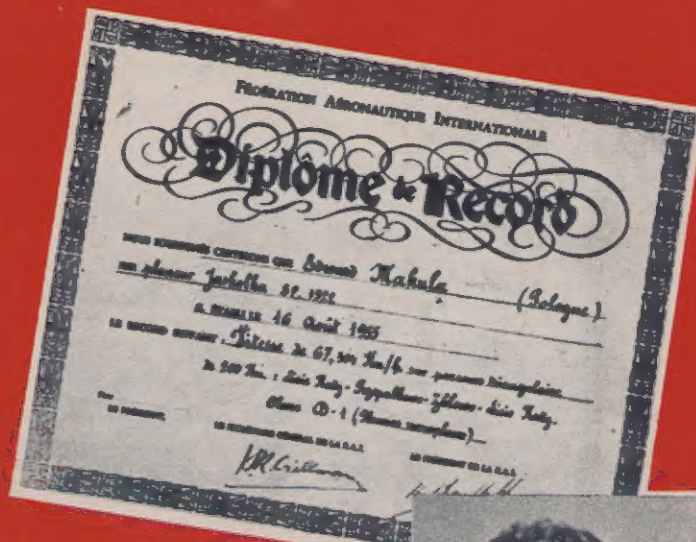 FÉDÉRATION AÉRONAUTIQUE INTERNATIONALE
Diplôme de Record
NOUS SOUSSIGNÉS CERTIFIONS QUE Edward Makula (Pologne)
sur planeur Jaskółka SP. 1922
A REALISE 16 Août 1955
LE RECORD SUIVANT : Vitesse de 67, Km/h. sur parcours triangulaire
de 200 Km. : Lisie Katy - - - Lisie Katy.
Classe D-1 (Planeurs monoplaces)
LE PRÉSIDENT, LE SECRÉTAIRE GÉNÉRAL DE LA F.A.I. LE PRÉSIDENT DE LA F.A.I.